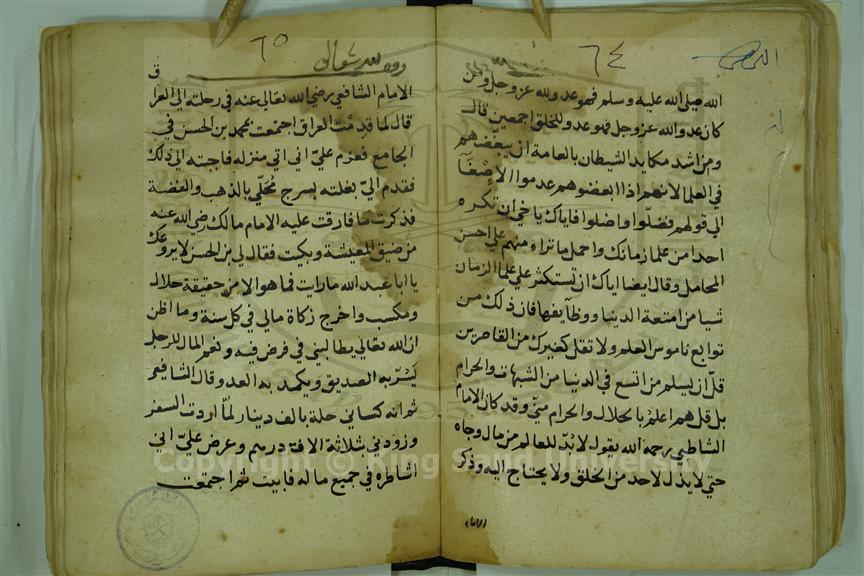 ٦٤
الله صلى الله عليه وسلم فهو عدو لله عز وجل ومن
كان عدو الله عز وجل فهو عدو للخلق اجمعين قال
ومن اشد مكايد الشيطان بالعامة ان يبغضهم
في العلما لانهم اذا ابغضوهم عدموا الاصغا
الى قولهم فضلّوا واضلوا فاياك ياخي ان تكره
احدا من علما زمانك واحمل ما تراه منهم على احسن
المحامل وقال ايضا اياك ان تستكثر على علما الزمان
شيا من امتعة الدنيا ووظايفها فان ذلك من
توابع ناموس العلم ولا تقل كغيرك من القاصرين
قلّ ان يسلم من اتسع في الدنيا من الشبهات والحرام
بل قل هم اعلم بالحلال والحرام منّي وقد كان الامام
الشاطبي رحمه الله يقول لا بدّ للعالم من مال وجاه
حتى لا يذل لاحد من الخلق ولا يحتاج اليه وذكر
الامام
٦٥
الامام الشافعي رضي الله تعالى عنه في رحلته الى العرا
ق
قال لما قدمت العراق اجتمعت بمحمد بن الحسن في
الجامع فعزم عليّ اني اتي منزله فاجبته الى ذلك
فقدم اليّ بغلته بسرج مُحَلّي بالذهب والفضة
فذكرت ما فارقت عليه الامام مالك رضي الله عنه
من ضيق المعيشة وبكيت فقال لي بن الحسن لا يروعك
يا ابا عبد الله ما رايت فما هو الا من حقيقة حلال
ومكسب واخرج زكاة مالي في كل سنة وما اظن
ان الله تعالى يطالبني في فرض فيه ونعم المال للرجل
يَسُرّ به الصديق ويكمد به العدو قال الشافعي
ثم انه كساني حلة بالف دينار لمّا اردت السفر
وزودني بثلاثة الاف درهم وعرض عليّ اني
اشاطره في جميع ماله فابيت ثم اجتمعت
Copyright © King Saud University